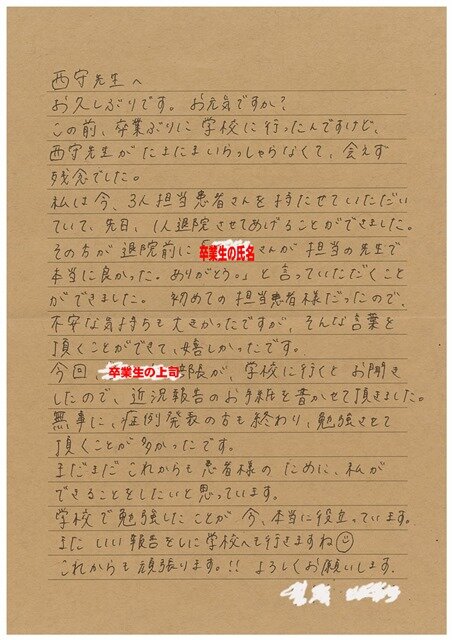 西守先生へ
お久しぶりです。お元気ですか?
この前、卒業ぶりに学校に行ったんですけど、
西守先生がたまたまいらっしゃらなくて、会えず
残念でした。
私は今、3人担当患者さんを持たせていただい
ていて、先日、1人退院させてあげることができました。
その方が退院前に「卒業生の氏名さんが担当の先生で
本当に良かった。ありがとう。」と言っていただくこと
ができました。初めての担当患者様だったので、
不安な気持ちも大きかったですが、そんな言葉を
頂くことができて、嬉しかったです。
今回、卒業生の上司部長が、学校に行くとお聞き
したので、近況報告のお手紙を書かせて頂きました。
無事に、症例発表の方も終わり、勉強させて
頂くことが多かったです。
まだまだこれからも患者様のために、私が
できることをしたいと思っています。
学校で勉強したことが今、本当に役立っています。
またいい報告をしに学校へも行きますね☺
これからも頑張ります。!! よろしくお願いします.